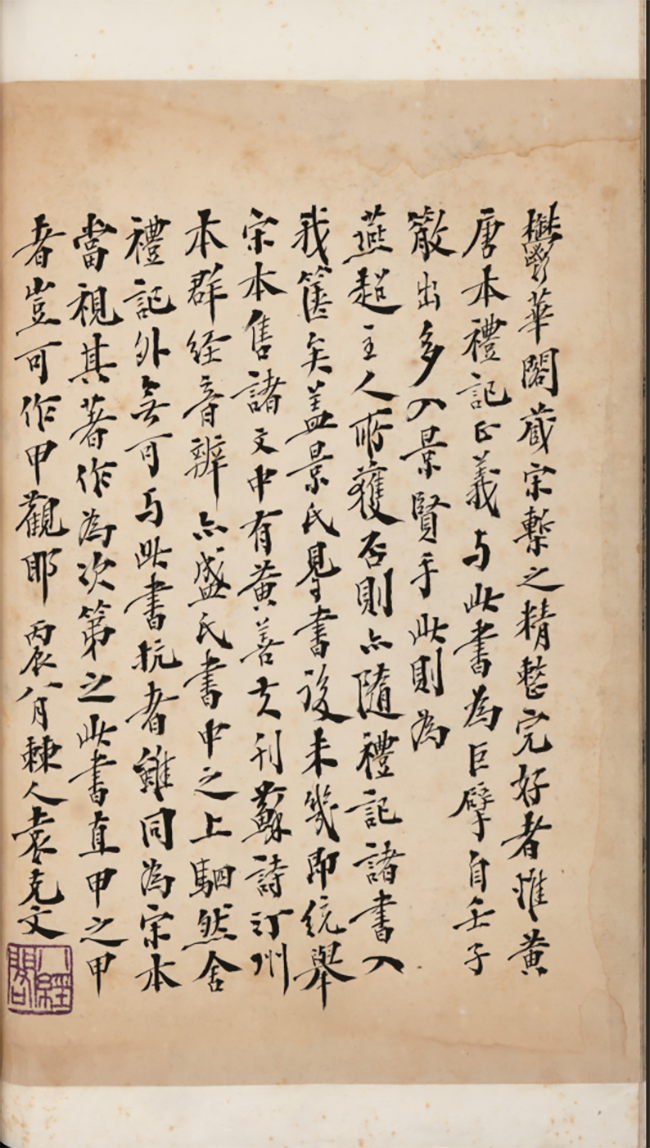 鬱華閣藏宋槧之精整完好者惟黃
唐本禮記正義与此書為巨擘自壬子
散出多入景賢手此則為
燕超主人所獲否則亦隨禮記諸書入
我篋矣蓋景氏得書後未幾即統舉
宋本售諸文中有黃善夫刊蘇詩汀州
本群經音辨亦盛氏書中之上駟然舍
禮記外無可与此書抗者雖同為宋本
當視其著作為次第之此書直甲之甲
者豈可作甲觀耶 丙辰八月棘人袁克文
八經閣